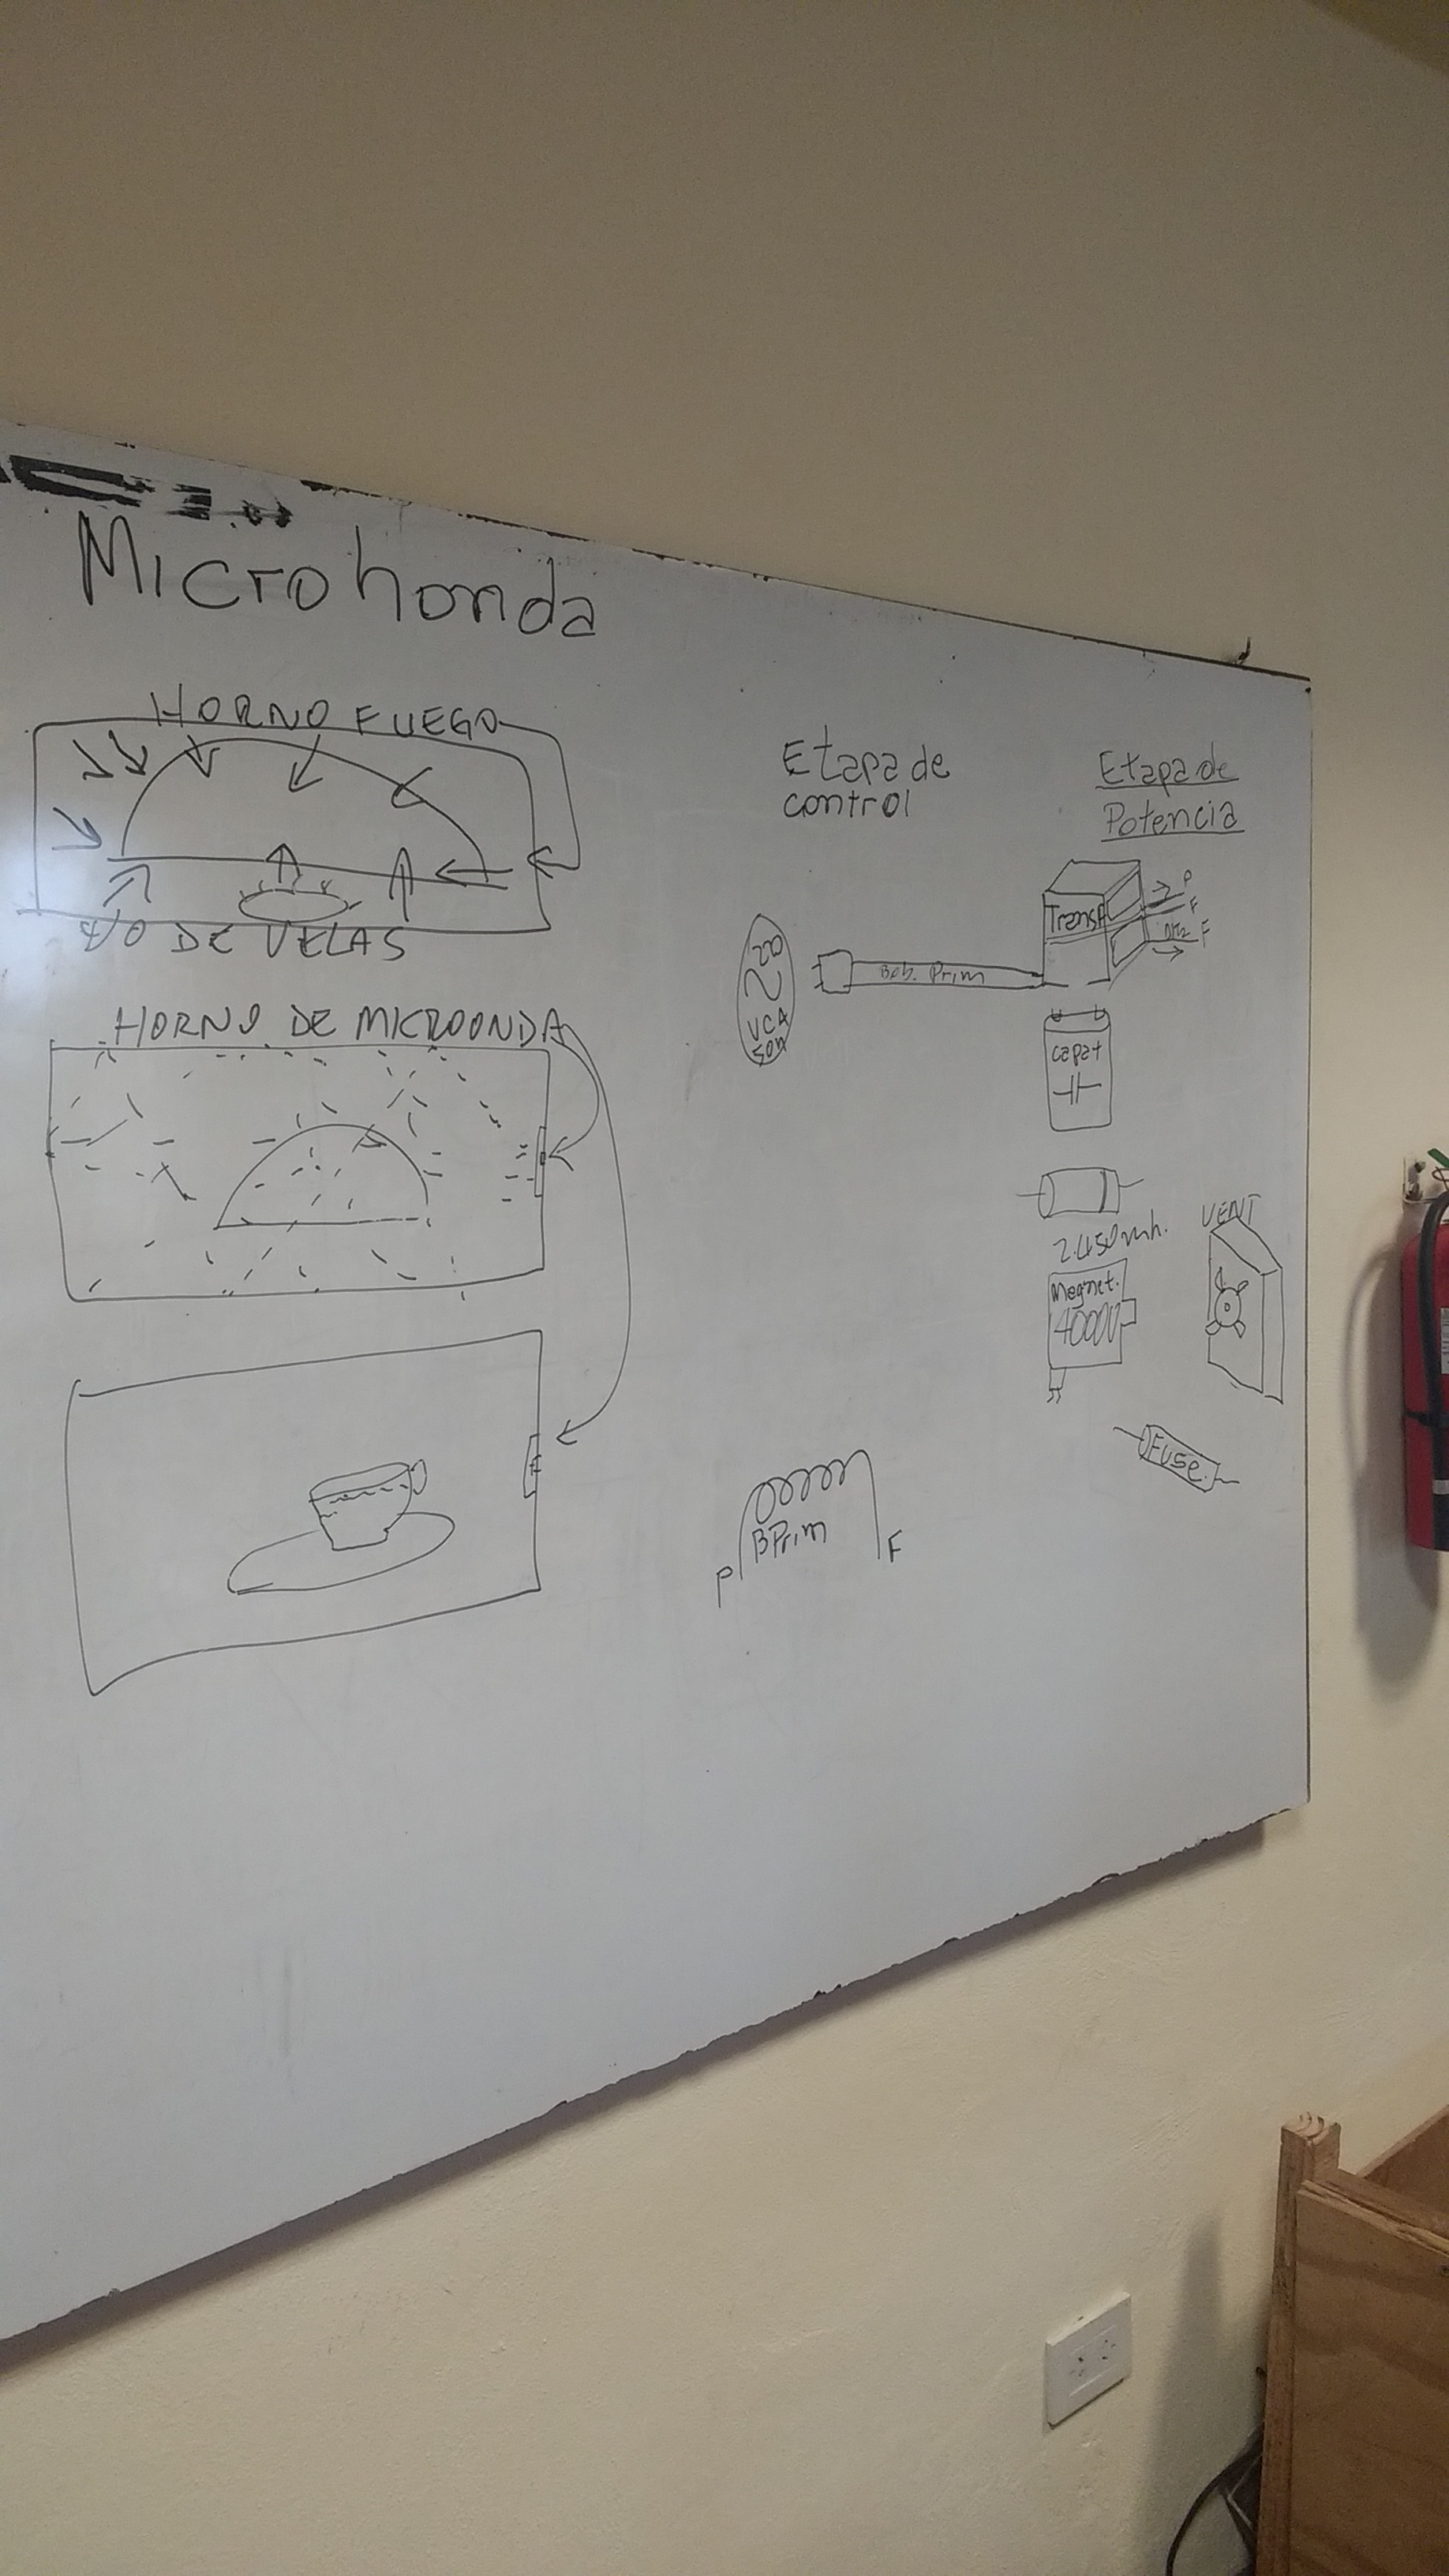 Microhonda
HORNO FUEGO
DE VELAS
HORNO DE MICROONDA
Etapa de
control
Etapa de
Potencia
Transf
P
F
F
Bob. Prim
VCA
capat
VENT
Magnet.
4000V
Fuse.
BPrim
P
F